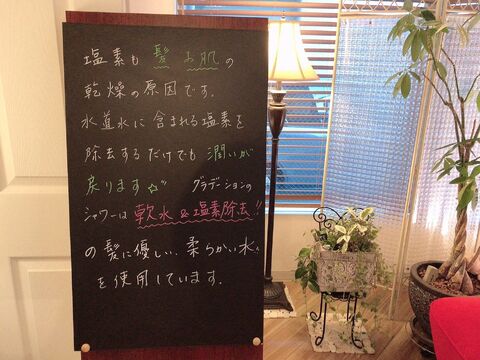 塩素も髪お肌の
乾燥の原因です。
水道水に含まれる塩素を
除去するだけでも潤いが
戻ります☆ グラデーションの
シャワーは軟水&塩素除去!!
の髪に優しい、柔らかい水
を使用しています。